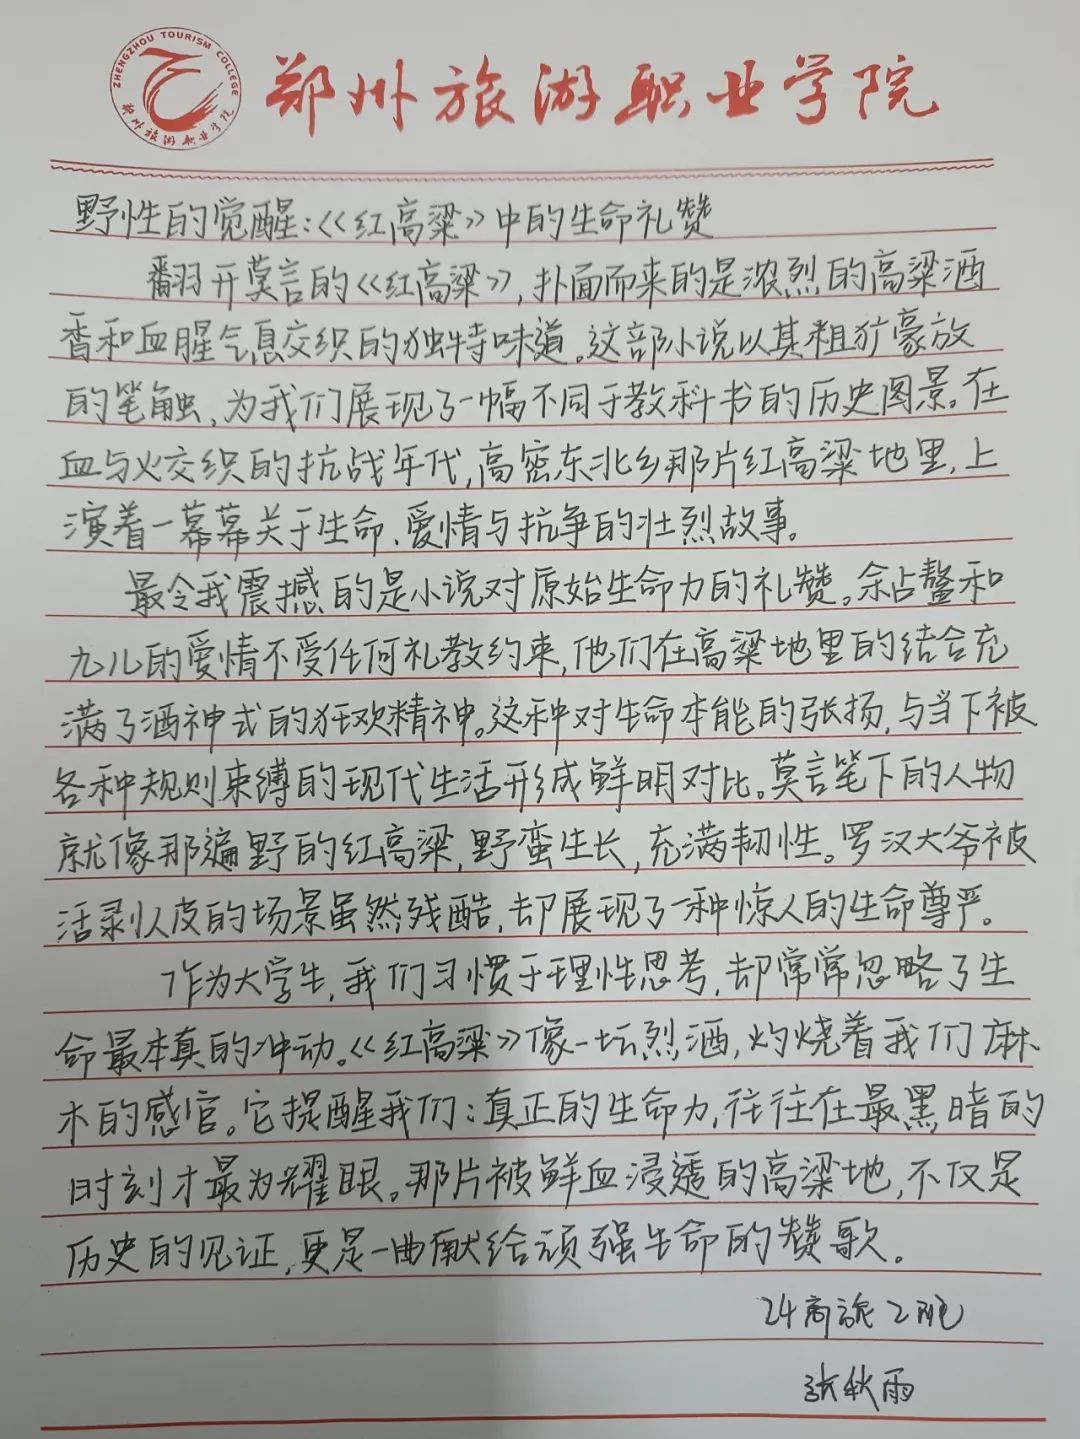 ZHENGZHOU TOURISM COLLEGE
郑州旅游职业学院
郑州旅游职业学院
野性的觉醒:《红高粱》中的生命礼赞
翻开莫言的《红高粱》,扑面而来的是浓烈的高粱酒
香和血腥气息交织的独特味道。这部小说以其粗犷豪放
的笔触,为我们展现了一幅不同于教科书的历史图景。在
血与火交织的抗战年代,高密东北乡那片红高粱地里,上
演着一幕幕关于生命、爱情与抗争的壮烈故事。
最令我震撼的是小说对原始生命力的礼赞。余占鳌和
九儿的爱情不受任何礼教约束,他们在高粱地里的结合充
满了酒神式的狂欢精神。这种对生命本能的张扬,与当下被
各种规则束缚的现代生活形成鲜明对比。莫言笔下的人物
就像那遍野的红高粱,野蛮生长,充满韧性。罗汉大爷被
活剥人皮的场景虽然残酷,却展现了一种惊人的生命尊严。
作为大学生,我们习惯于理性思考,却常常忽略了生
命最本真的冲动。《红高粱》像一坛烈酒,灼烧着我们麻
木的感官。它提醒我们:真正的生命力,往往在最黑暗的
时刻才最为耀眼。那片被鲜血浸透的高粱地,不仅是
历史的见证,更是一曲献给顽强生命的赞歌。
24商旅2班
张秋雨